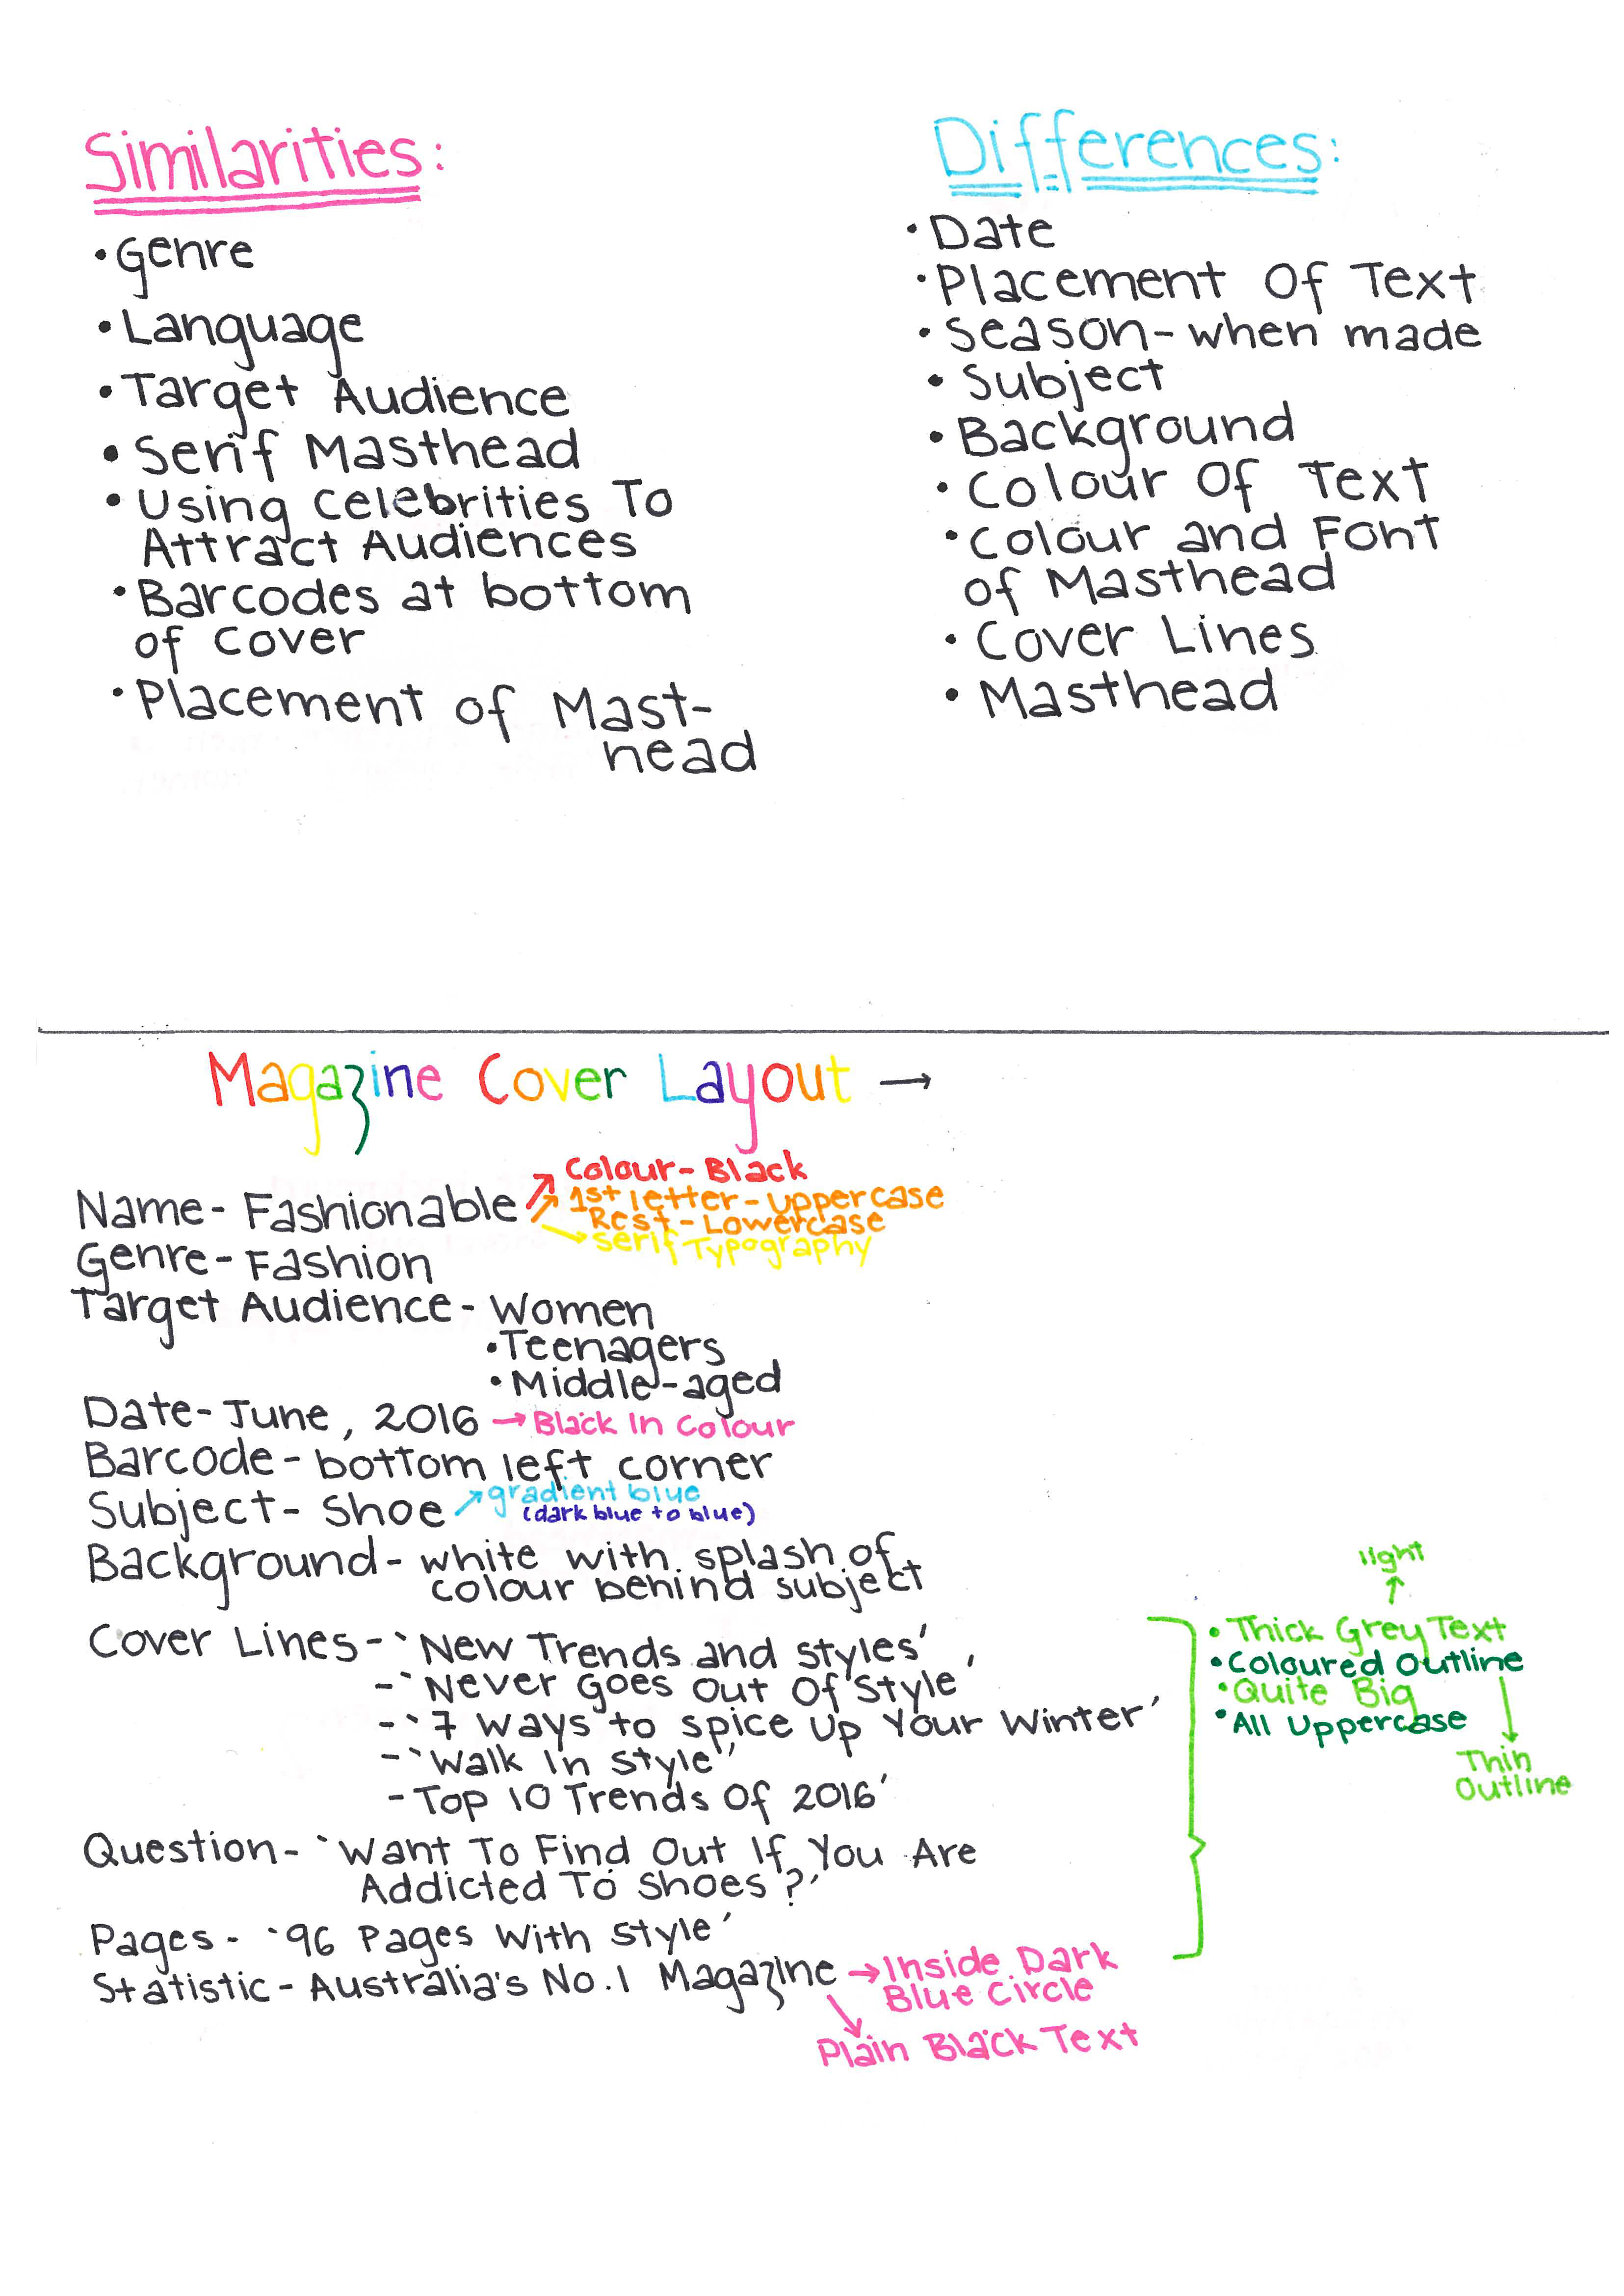 Similarities:
• Genre
• Language
• Target Audience
• Serif Masthead
• Using Celebrities To
Attract Audiences
• Barcodes at bottom
of cover
• Placement of Mast-
head
Differences:
• Date
• Placement Of Text
• Season - when made
• Subject
• Background
• Colour Of Text
• Colour and Font
of Masthead
• Cover Lines
• Masthead
Magazine Cover Layout →
Name - Fashionable
Colour - Black
1st letter - uppercase
Rest - Lowercase
→ Serif Typography
Genre - Fashion
Target Audience - Women
• Teenagers
• Middle-aged
Date - June, 2016 → Black In Colour
Barcode - bottom left corner
Subject - Shoe ↗ gradient blue
(dark blue to blue)
Background - white with splash of
colour behind subject
Cover Lines - `New Trends and Styles'
- `Never Goes Out Of Style'
- `7 Ways to Spice Up Your Winter'
- `Walk In Style'
- Top 10 Trends Of 2016'
light
↑
• Thick Grey Text
• Coloured Outline
• Quite Big
• All Uppercase
Thin
Outline
Question - `Want To Find Out If You Are
Addicted To Shoes?'
Pages - `96 Pages With Style'
Statistic - Australia's No.1 Magazine → Inside Dark
Blue Circle
Plain Black Text